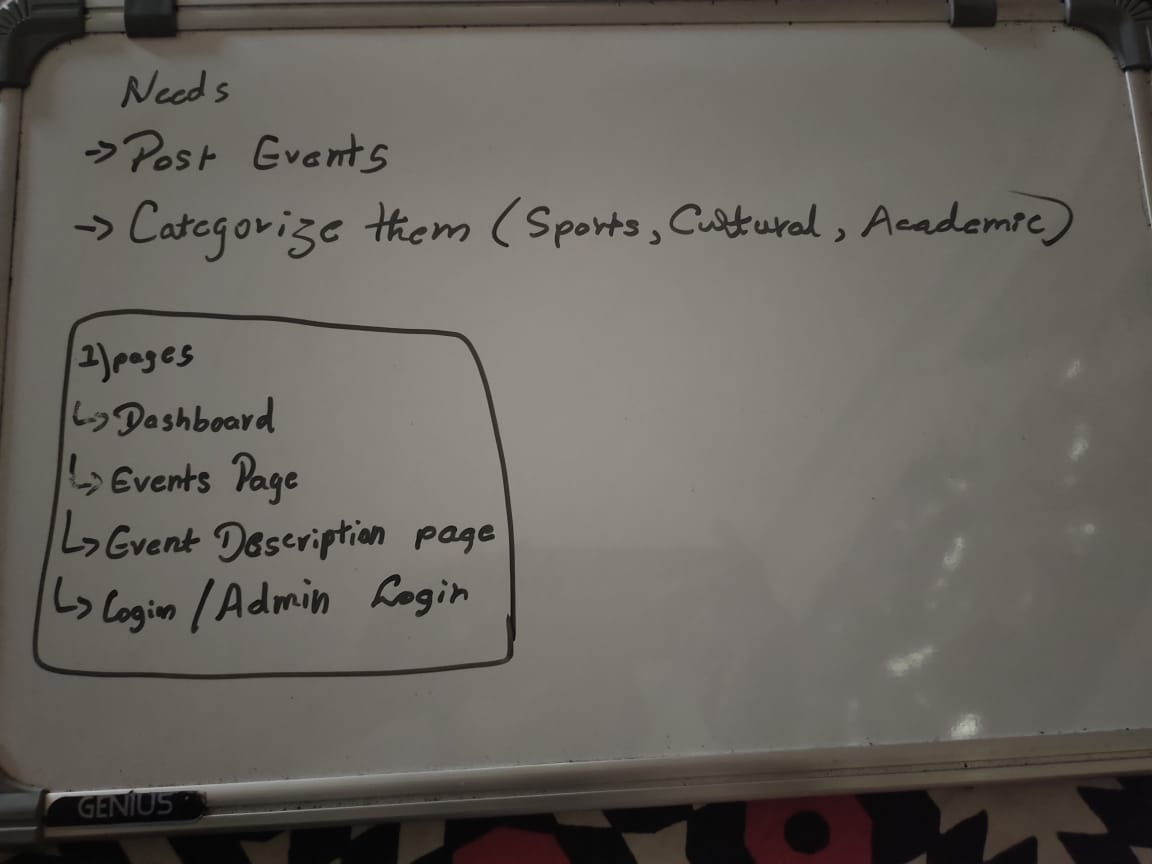 Needs
→ Post Events
→ Categorize them (Sports, Cultural, Academic)
1) pages
↳ Dashboard
↳ Events Page
↳ Event Description page
↳ Login / Admin Login
GENIUS